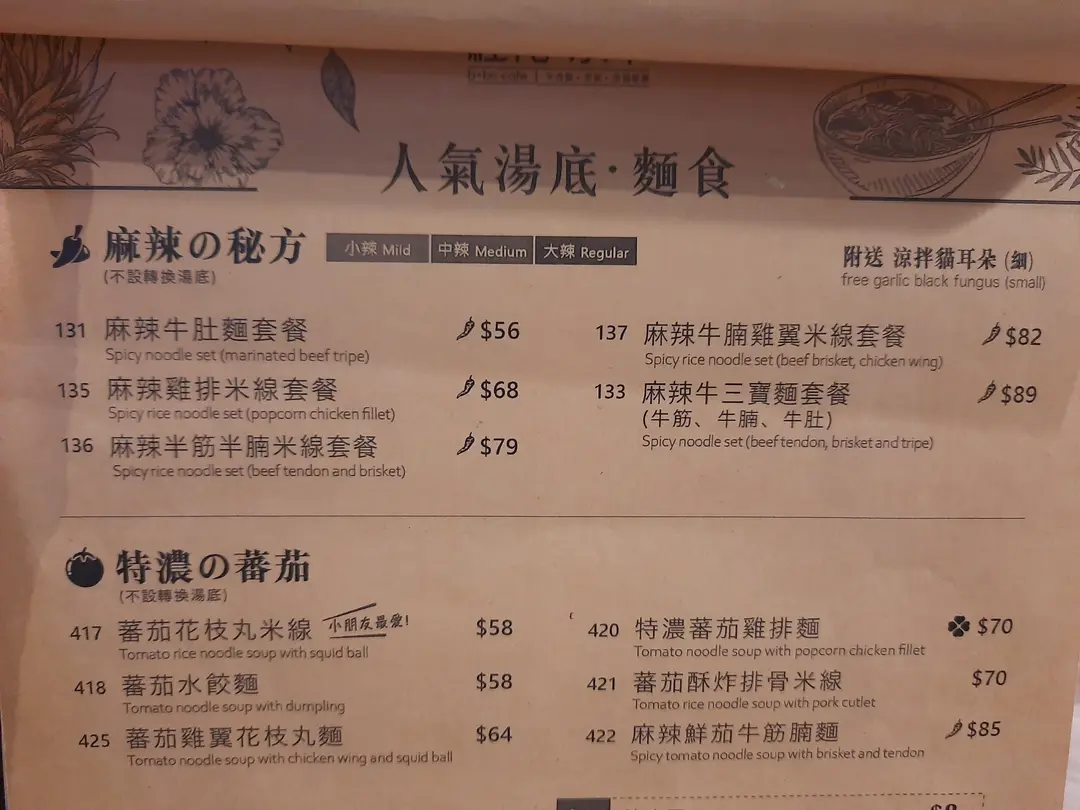 人氣湯底·麵食
麻辣の秘方
小辣 Mild
中辣 Medium
大辣 Regular
(不設轉換湯底)
附送 涼拌貓耳朵 (細)
free garlic black fungus (small)
131 麻辣牛肚麵套餐 $56
Spicy noodle set (marinated beef tripe)
135 麻辣雞排米線套餐 $68
Spicy rice noodle set (popcorn chicken fillet)
136 麻辣半筋半腩米線套餐 $79
Spicy rice noodle set (beef tendon and brisket)
137 麻辣牛腩雞翼米線套餐 $82
Spicy rice noodle set (beef brisket, chicken wing)
133 麻辣牛三寶麵套餐 $89
(牛筋、牛腩、牛肚)
Spicy noodle set (beef tendon, brisket and tripe)
特濃の蕃茄
(不設轉換湯底)
417 蕃茄花枝丸米線 小朋友最愛! $58
Tomato rice noodle soup with squid ball
418 蕃茄水餃麵 $58
Tomato noodle soup with dumpling
425 蕃茄雞翼花枝丸麵 $64
Tomato noodle soup with chicken wing and squid ball
420 特濃蕃茄雞排麵 $70
Tomato noodle soup with popcorn chicken fillet
421 蕃茄酥炸排骨米線 $70
Tomato rice noodle soup with pork cutlet
422 麻辣鮮茄牛筋腩麵 $85
Spicy tomato noodle soup with brisket and tendon